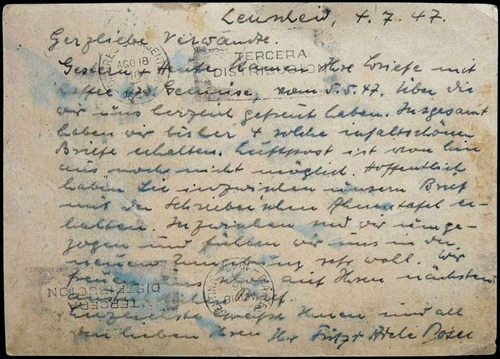 4. 7. 47.
Herzliebe Verwandte.
Gestern + Heute kamen Ihre Briefe mit
vom 5.5.47. Über die
wir uns herzlich gefreut haben. Insgesamt
haben wir bisher 4 solche inhaltschönen
Briefe erhalten. Luftpost ist von hier
aus noch nicht möglich. Hoffentlich
haben Sie inzwischen unseren Brief
mit der Ahnentafel er-
halten. Inzwischen sind wir umge-
zogen und fühlen wir uns in der
neuen Umgebung sehr wohl. Wir
freuen uns schon auf Ihren nächsten
Herzlichst grüßt Ihnen und all
Ihren lieben Ihre Fritz + Adele
AGO 18
TERCERA
DISTRIBUCION
TERCERA
DISTRIBUCION